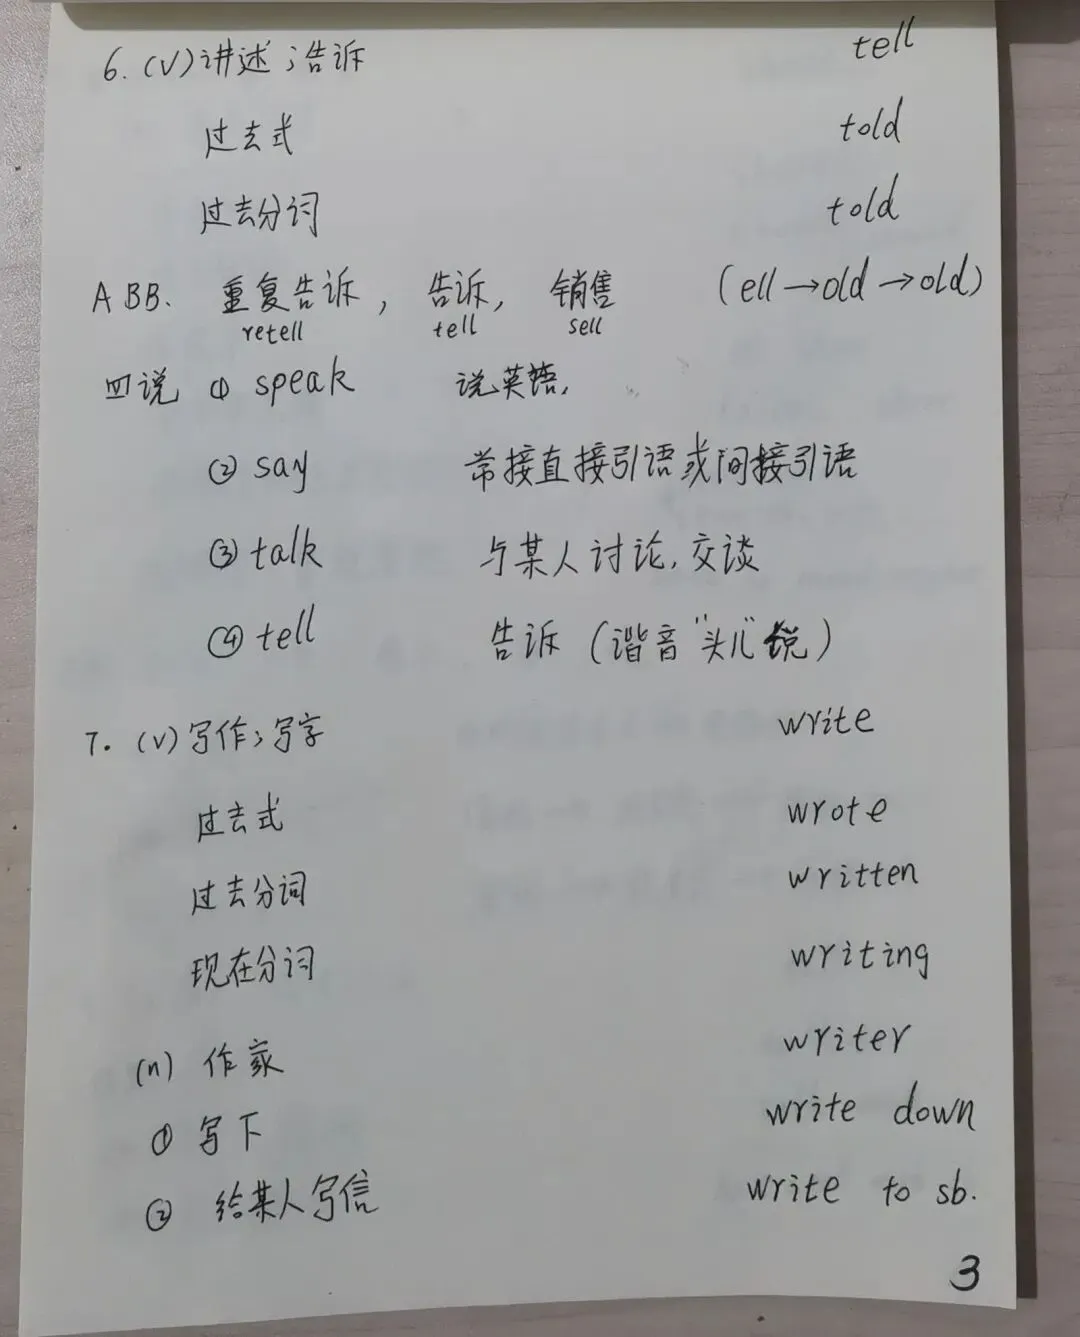 6. (V)讲述；告诉 tell
过去式 told
过去分词 told
ABB. 重复告诉, 告诉, 销售 (ell→old→old)
retell tell sell
四说 ① speak 说英语,
② say 常接直接引语或间接引语
③ talk 与某人讨论,交谈
④ tell 告诉 (谐音"头儿"说)
7. (V)写作；写字 write
过去式 wrote
过去分词 written
现在分词 writing
(n) 作家 writer
① 写下 write down
② 给某人写信 write to sb.
3